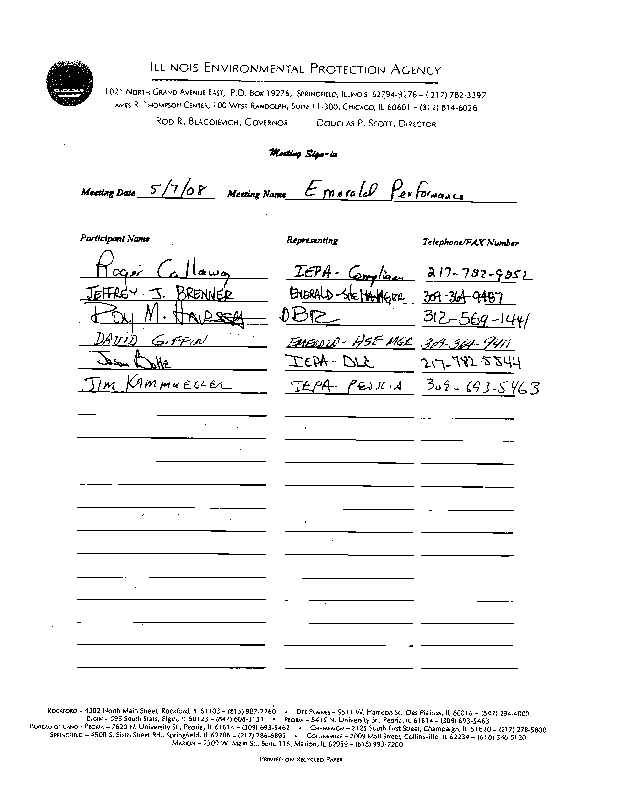 ILLINOIS ENVIRONMENTAL PROTECTION AGENCY
1021 NORTH GRAND AVENUE EAST, P.O. BOX 19276, SPRINGFIELD, ILLINOIS 62794-9276 – (217) 782-3397
JAMES R. THOMPSON CENTER, 100 WEST RANDOLPH, SUITE 11-300, CHICAGO, IL 60601 – (312) 814-6026
ROD R. BLAGOJEVICH, GOVERNOR DOUGLAS P. SCOTT, DIRECTOR
Meeting Sign-in
Meeting Date 5/7/08 Meeting Name Emerald Performance
Participant Name Representing Telephone/FAX Number
Roger Callaway IEPA - Compliance 217-782-9852
JEFFREY J. BRENNER EMERALD - SITE MANAGER 309-364-9487
Roy M. DBR 312-569-1441
DAVID GIFFIN EMERALD - HSE MGR 309-364-9411
Jason IEPA - DLC 217-782-5544
JIM KAMMUELLER IEPA - PEORIA 309-693-5463
ROCKFORD – 4302 North Main Street, Rockford, IL 61103 – (815) 987-7760 • DES PLAINES – 9511 W. Harrison St., Des Plaines, IL 60016 – (847) 294-4000
ELGIN – 595 South State, Elgin, IL 60123 – (847) 608-3131 • PEORIA – 5415 N. University St., Peoria, IL 61614 – (309) 693-5463
BUREAU OF LAND - PEORIA – 7620 N. University St., Peoria, IL 61614 – (309) 693-5462 • CHAMPAIGN – 2125 South First Street, Champaign, IL 61820 – (217) 278-5800
SPRINGFIELD – 4500 S. Sixth Street Rd., Springfield, IL 62706 – (217) 786-6892 • COLLINSVILLE – 2009 Mall Street, Collinsville, IL 62234 – (618) 346-5120
MARION – 2309 W. Main St., Suite 116, Marion, IL 62959 – (618) 993-7200
PRINTED ON RECYCLED PAPER